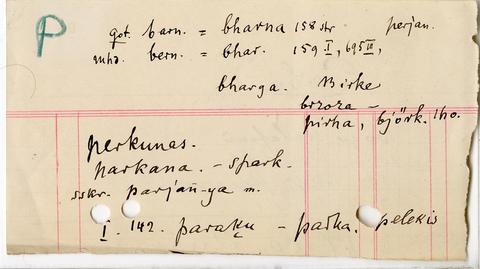 P
got. barn. = bharna 158 str perjan.
mhd. bern. = bhar. 159 I, 695 III,
bharga. Birke
brzoza –
pirha, björk. 140.
perkunas.
parkana. – spark.
sskr. parjan-ya m.
I. 142. paraķu – paŕka. pelekis